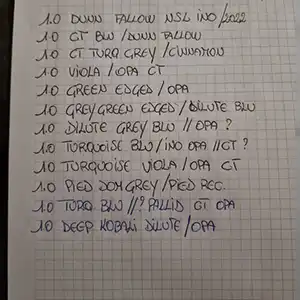 1.0 DUNN FALLOW NSL INO/2022
1.0 CT BLU/DUNN FALLOW
1.0 CT TURQ GREY/CINNAMON
1.0 VIOLA/OPA CT
1.0 GREEN EDGED/OPA
1.0 GREYGREEN EDGED/DILUTE BLU
1.0 DILUTE GREY BLU // OPA ?
1.0 TURQUOISE BLU/INO OPA //CT ?
1.0 TURQUOISE VIOLA/OPA CT
1.0 PIED DOM GREY/PIED REC.
1.0 TURQ BLU //? PALLID CT OPA
1.0 DEEP KOBALT DILUTE/OPA